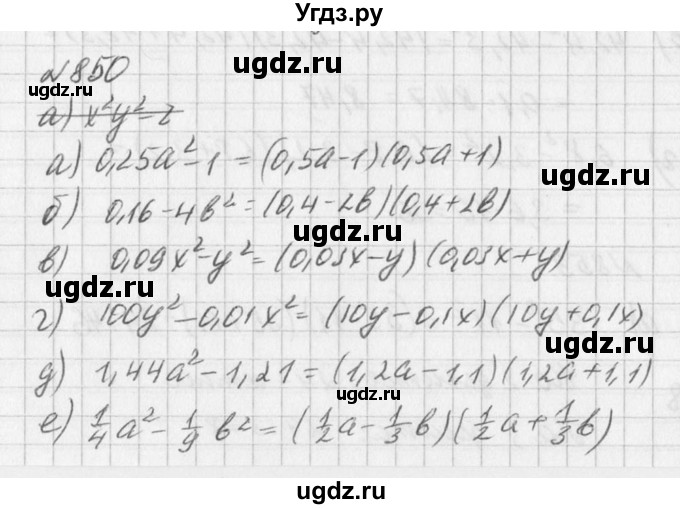 Угдз.ру
№850
ugdz.ru
ugdz.ru
а) x²y²-z
а) 0,25a²-1 = (0,5a-1)(0,5a+1)
ugdz.ru
б) 0,16-4в² = (0,4-2в)(0,4+2в)
ugdz.ru
в) 0,09x²-y² = (0,03x-y)(0,03x+y)
ugdz.ru
г) 100y²-0,01x² = (10y-0,1x)(10y+0,1x)
ugdz.ru
ugdz.ru
д) 1,44a²-1,21 = (1,2a-1,1)(1,2a+1,1)
ugdz.ru
е) 1/4a²-1/9в² = (1/2a-1/3в)(1/2a+1/3в)
ugdz.ru